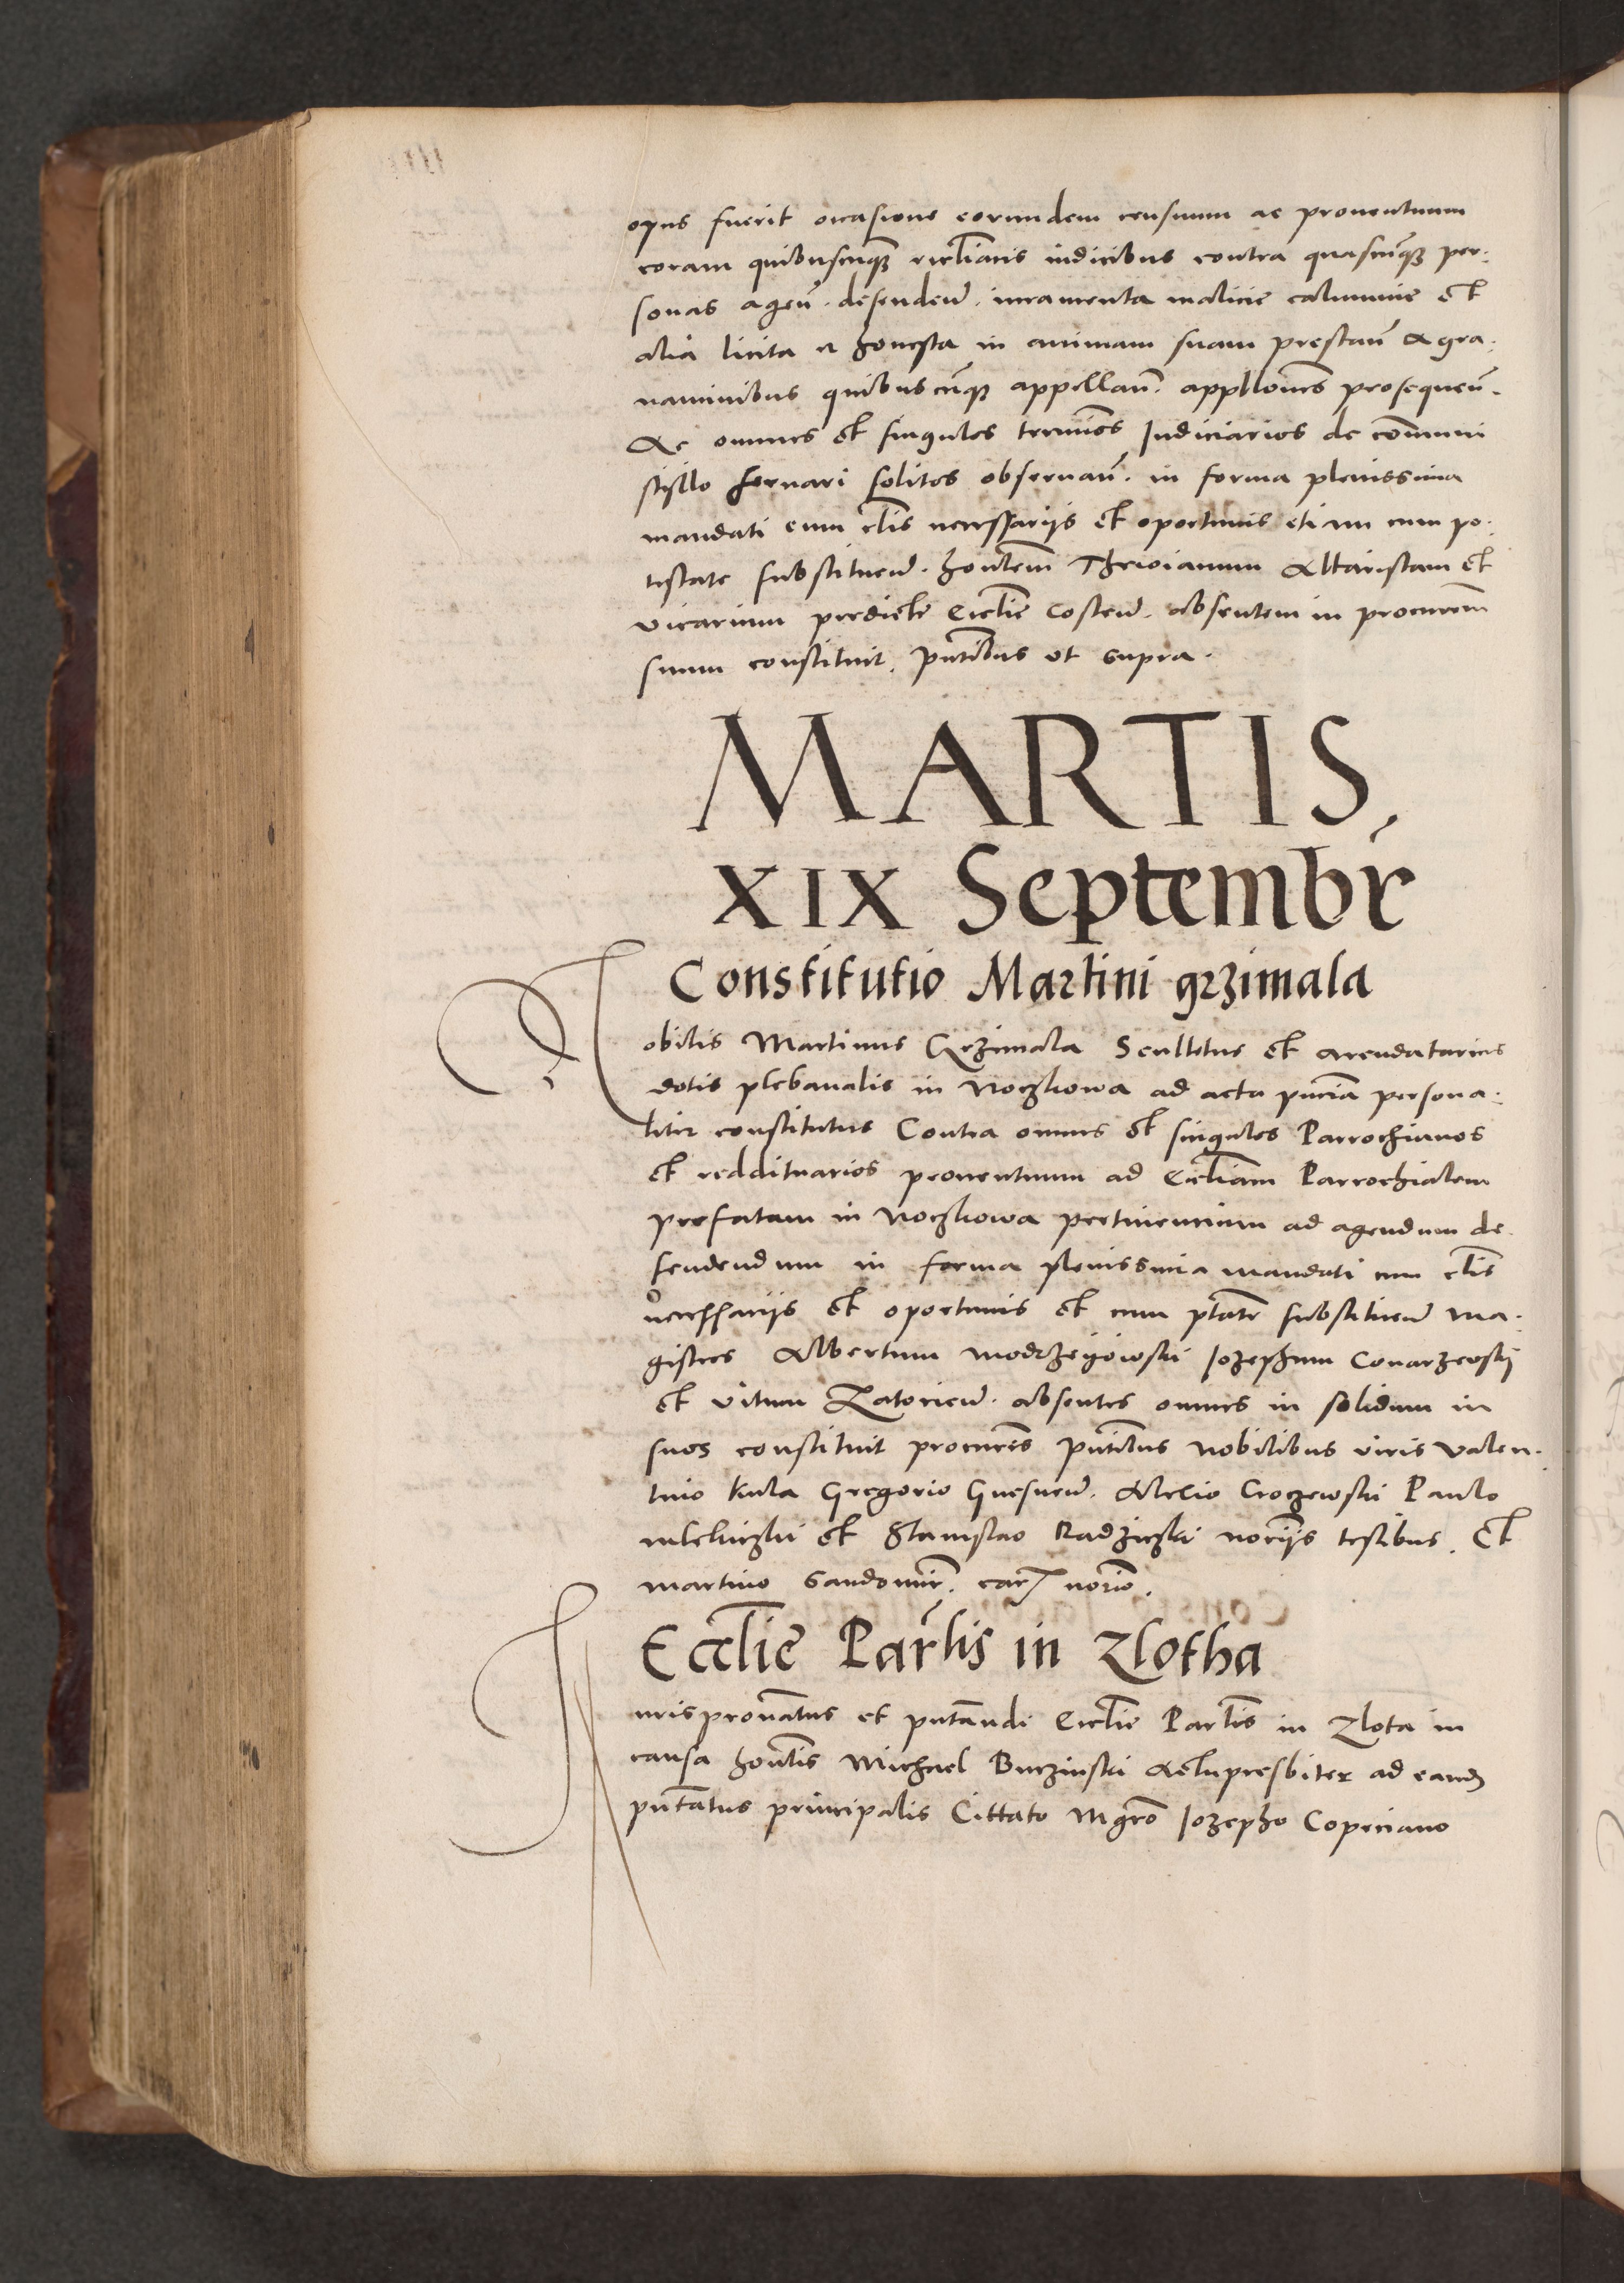 opus fuerit occasione eorundem censuum ac prouentuum
coram quibuscunq̃ ecclīacis iudicibus contra quascunq̃ per:
sonas ageñ. defendeñ. iuramenta malicie calumnie et
alia licita et honesta in animam suam prestañ A gra:
uaminibus quibuscūque appellañ. appllōnes prosequeñ.
Ac omnes et singulos terminos Iudiciarios de cōmuni
stillo seruari solitos obseruañ. in forma plenissima
mandati cum cl̄is necessarijs et oportunis etiam cum po:
testate substitueñ. honlem Altaristam et
vicarium predicte Ecclie Costeñ. absentem in procurem̄
suum constituit. pñtibus ut supra.
MARTIS,
XIX Septembr̃
Constitutio Martini grzimala
Nobilis Martinus Grzimala Scultetus et arendatarius
dotis plebanalis in Voczhowa ad acta pñcia persona:
liter constitutus Contra omnes et singulos Parrochianos
et reddituarios prouentuum ad Eccliam Parrochialem
prefatam in Voczhowa pertinencium ad agendum de
fendendum in forma plenissima mandati cum cl̄is
necessarijs et oportunis et cum ptate substitueñ ma:
gistros Albertum Iozephum Conarzewskij
et Vitum Zatorieñ. absentes omnes in solidum in
suos constituit procures pñtibus nobilibus viris Valen:
tino Kula Gregorio Gnesneñ. Alexio Croczewski Paulo
et Stanislao Radziczki norijs testibus. Et
martino Sandomir. cart norio.
Ecclie Parlis in Zlotha
Iurispronatus et pñtandi Ecclie Parlis in Zlota in
causa honlis Michael Burzinski Actu presbiter ad eand
pñtatus principalis Cittato Mgro Iozepho Copeciano